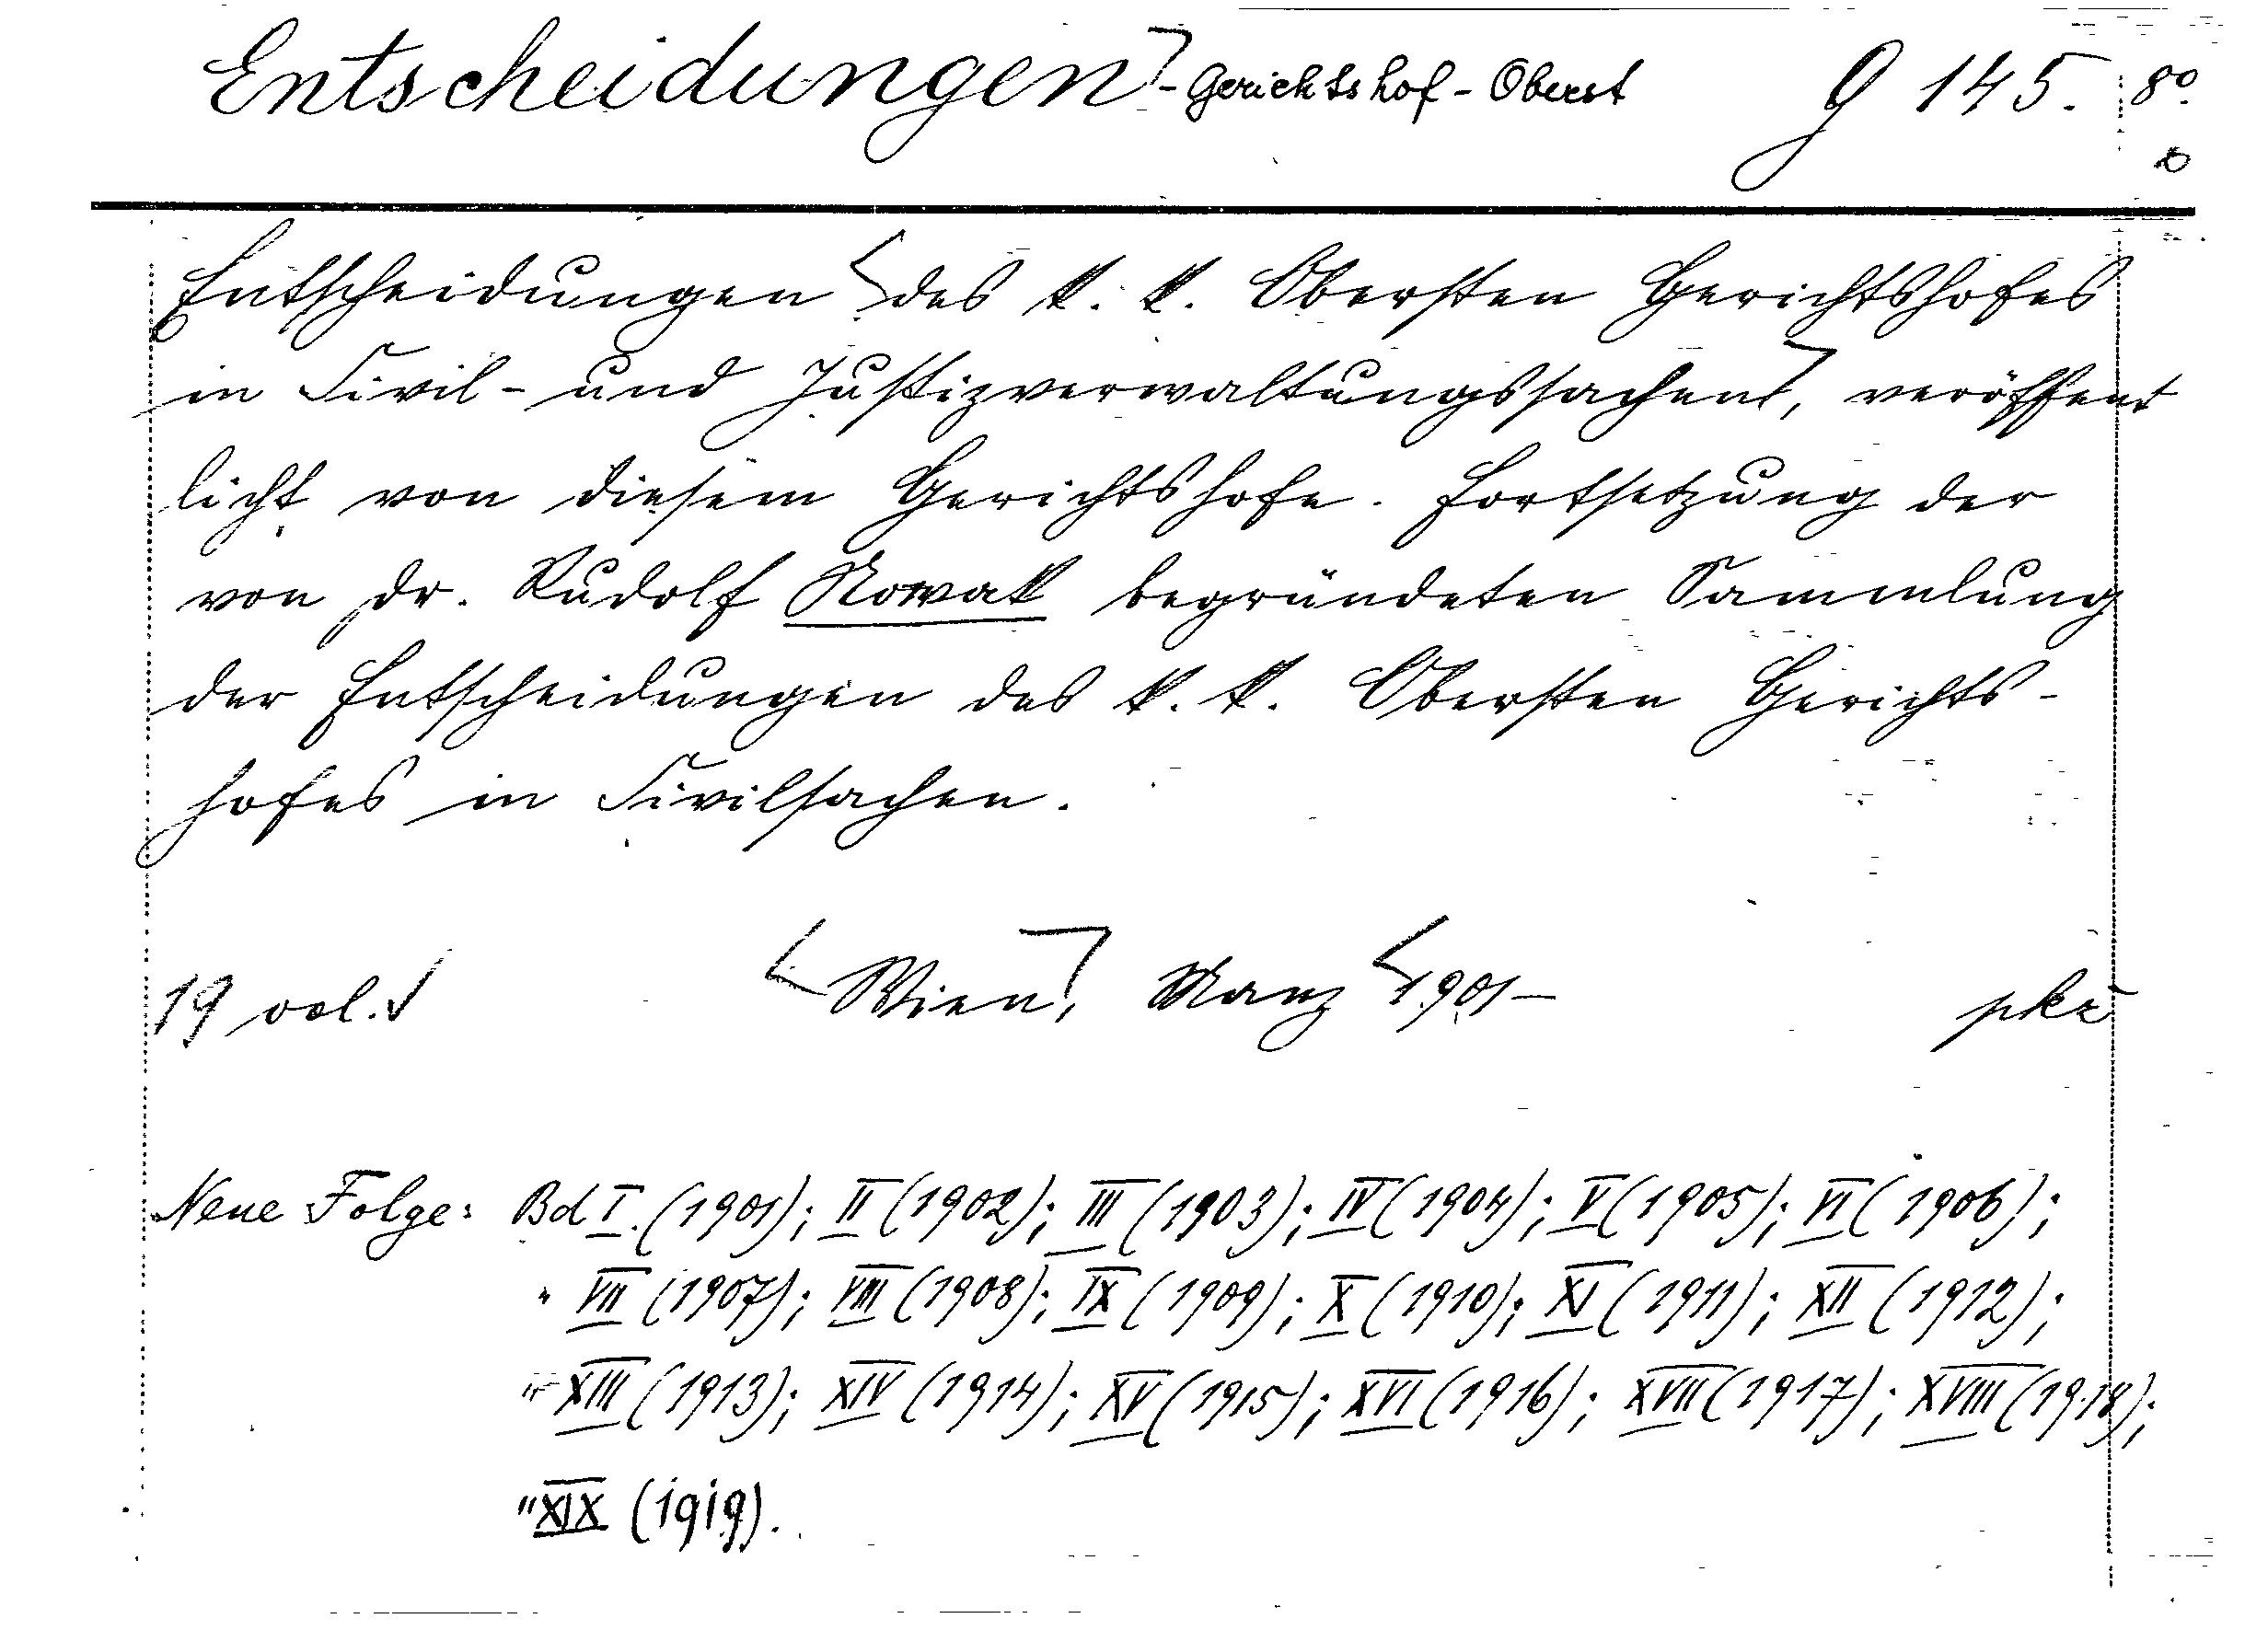 Entscheidungen - Gerichtshof - Oberst G 145. 8°.
Entscheidungen des k. k. Obersten Gerichtshofes
in Civil- und Justizverwaltungssachen, veröffent
licht von diesem Gerichtshofe. Fortsetzung der
von Dr. Rudolf Nowak begründeten Sammlung
der Entscheidungen des k. k. Obersten Gerichts-
hofes in Civilsachen.
19 vol. Wien, Manz 1901-
Neue Folge: Bd I. (1901); II (1902); III (1903); IV (1904); V (1905); VI (1906);
" VII (1907); VIII (1908); IX (1909); X (1910); XI (1911); XII (1912);
" XIII (1913); XIV (1914); XV (1915); XVI (1916); XVII (1917); XVIII (1918);
" XIX (1919).